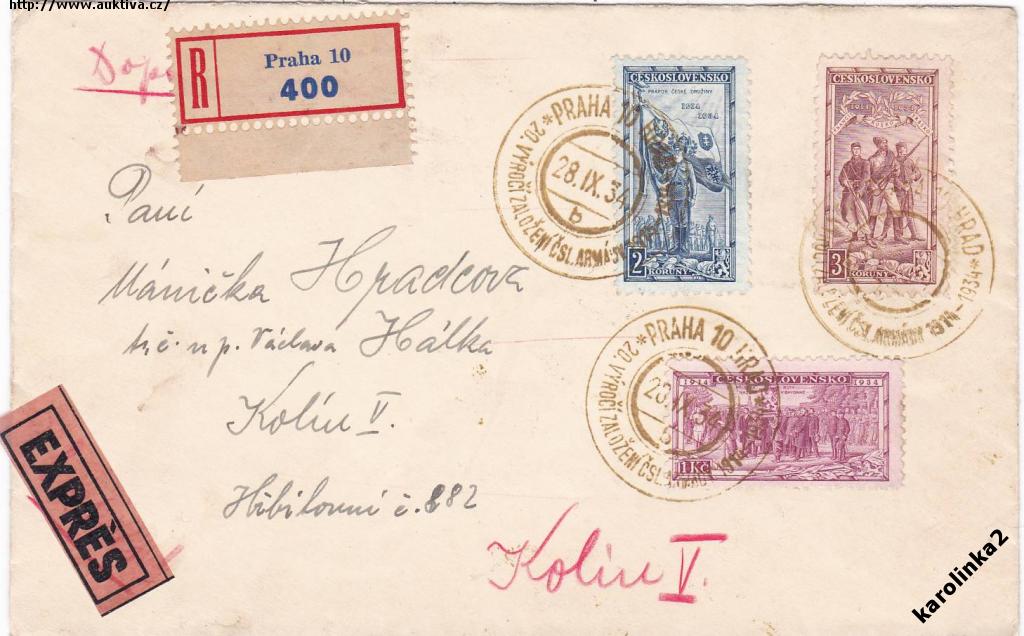 http://www.auktiva.cz/
Dopo
R
Praha 10
400
Paní
Mánička Hradcova
t.č. u p. Václava Hálka
Kolín V.
Hřbitovní č. 882
Kolín V.
EXPRÈS
ČESKOSLOVENSKO
PRAPOR ČESKÉ DRUŽINY
1914
1934
2
KORUNY
ČESKOSLOVENSKO
3
KORUNY
1914 ČESKOSLOVENSKO 1934
1 Kč
*PRAHA 10 HRAD*
20. VÝROČÍ ZALOŽENÍ ČSL. ARMÁDY
28.IX.34
b
HRAD
ZALOŽENÍ ČSL. ARMÁDY 1914-1934*
*PRAHA 10 HRAD*
20. VÝROČÍ ZALOŽENÍ ČSL.
28.IX.34
karolinka2